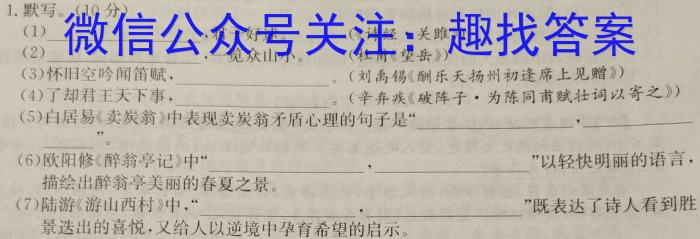 1.默写。(10 分)
微信公众号关注：趣找答案
(1)
(2)，一览众山小。(杜甫《望岳》)
(3)怀旧空吟闻笛赋，。(刘禹锡《酬乐天扬州初逢席上见赠》)
(4)了却君王天下事，。(辛弃疾《破阵子·为陈同甫赋壮词以寄之》)
(5)白居易《卖炭翁》中表现卖炭翁矛盾心理的句子是“，
”。
(6)欧阳修《醉翁亭记》中“，”以轻快明丽的语言，
描绘出醉翁亭美丽的春夏之景。
(7)陆游《游山西村》中，“，”既表达了诗人看到胜
景迭出的喜悦，又给人以逆境中孕育希望的启示。